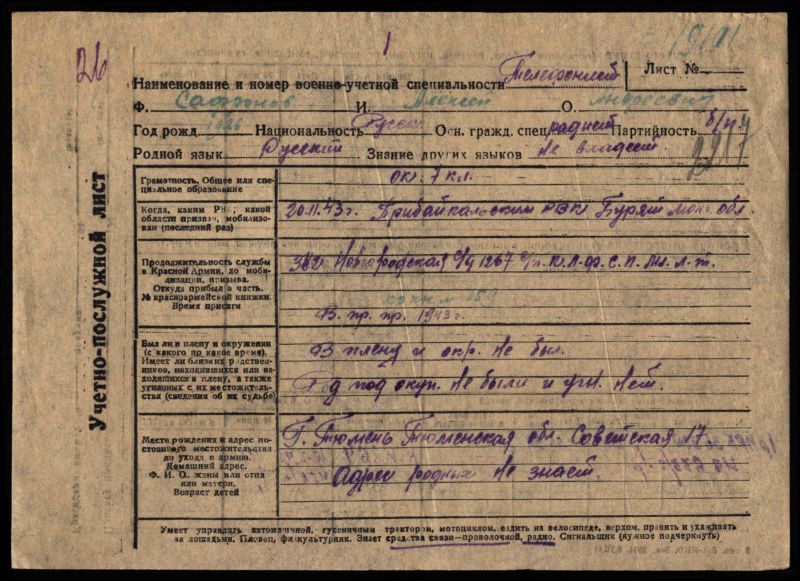 26
1
Наименование и номер военно-учетной специальности Телефонист
Лист №
Ф. Сафронов И. Алексей О. Андреевич
Год рожд. 1926 Национальность Русск Осн. гражд. спец. радист Партийность б/п
Родной язык Русский Знание других языков не владеет
Учетно-послужной лист
Грамотность. Общее или специальное образование
ок. 7 кл.
Когда, каким РВК, какой области призван, мобилизован (последний раз)
20.11.43г. Прибайкальским РВК Бурят монг. обл.
Продолжительность службы в Красной Армии, до мобилизации, призыва.
Откуда прибыл в часть.
№ красноармейской книжки.
Время присяги
382 Новгородская с/д 1267 с/п.
В. пр. пр. 1943г.
Был ли в плену и окружении (с какого по какое время).
Имеет ли близких родственников, находившихся или находящихся в плену, а также угнанных с их местожительства (сведения об их судьбе)
В плену и окр. не был.
Род под окуп. не были и угн. нет.
Место рождения и адрес постоянного местожительства до ухода в армию.
Домашний адрес.
Ф. И. О. жены или отца или матери.
Возраст детей
Г. Тюмень Тюменская обл. Советская 17
Адрес родных не знает.
Умеет управлять автомашиной, гусеничным трактором, мотоциклом, ездить на велосипеде, верхом, править и ухаживать
за лошадьми. Пловец, физкультурник. Знает средства связи—проволочной, радио. Сигнальщик (нужное подчеркнуть)